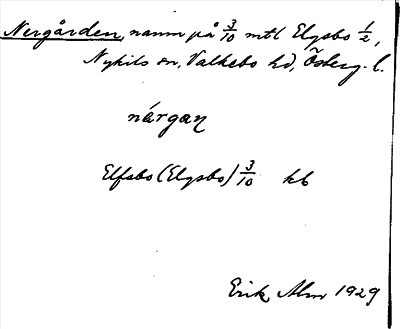 Nergården, namn på 3/10 mtl Elgsbo 1/2,
Nykils sn, Valkebo hd, Österg. l.
nárgaɳ
Elfsbo (Elgsbo) 3/10 kb
Erik Alm 1929